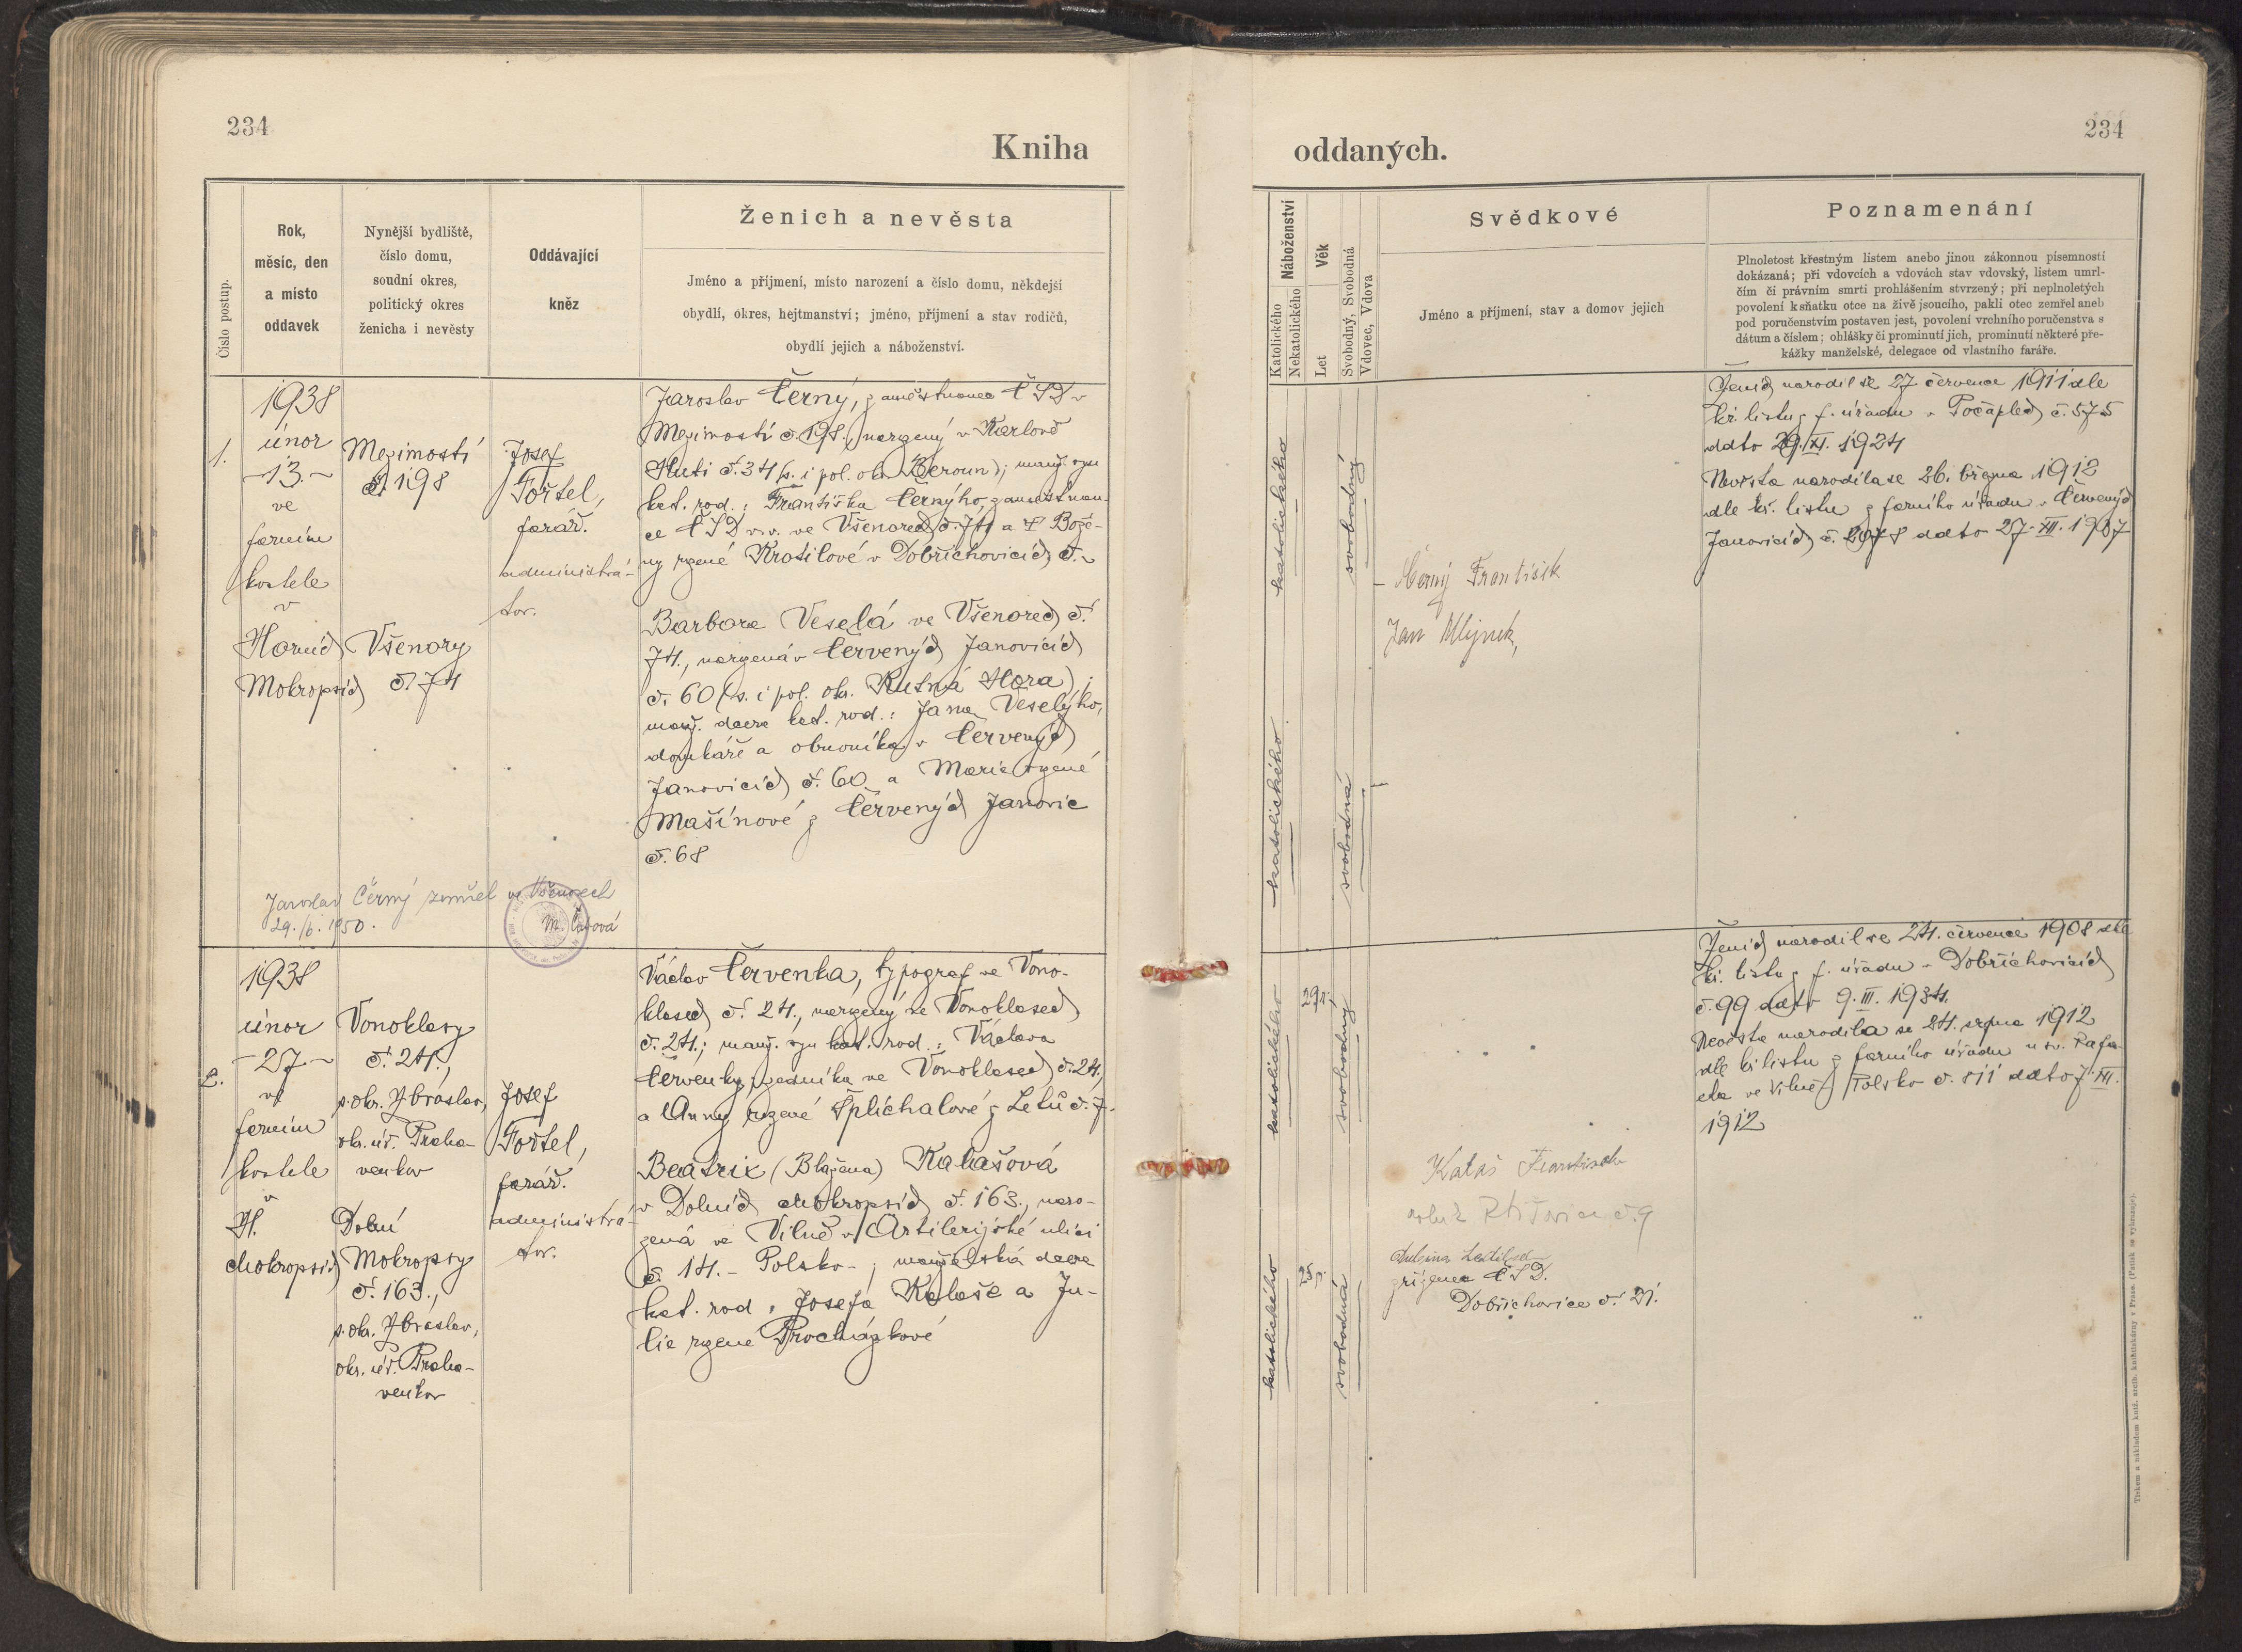 234
Kniha
Číslo postup.
Rok,
měsíc, den
a místo
oddavek
Nynější bydliště,
číslo domu,
soudní okres,
politický okres
ženicha i nevěsty
Oddávající
kněz
Ženich a nevěsta
Jméno a příjmení, místo narození a číslo domu, někdejší
obydlí, okres, hejtmanství; jméno, příjmení a stav rodičů,
obydlí jejich a náboženství.
1.
1938
únor
-13.-
ve
farním
kostele
v
Horních
Mokropsích
Mezimostí
č. 198
Všenory
č. 74
Josef
Fořtel,
farář.
administrá-
tor.
Jaroslav Černý, zaměstnanec ČSD v
Mezimostí č. 198., narozený v Karlově
Huti č. 34 (s. i pol. okr. Beroun); manž. syn
kat. rod.: Františka Černýho, zaměstnan-
ce ČSD v.v. ve Všenorech č. 74 a Bože-
ny rozené Kratilové v Dobřichovicích č.
Barbora Veselá ve Všenorech č.
74., narozená v Červených Janovicích
č. 60 (s. i pol. okr. Kutná Hora);
manž. dcera kat. rod.: Jana Veselýho,
domkáře a obuvníka v Červených
Janovicích č. 60 a Marie rozené
Mašínové z Červených Janovic
č. 68
Jaroslav Černý zemřel ve Všenorech
29./6. 1950.
2.
1938
únor
-27-
ve
farním
kostele
v
H.
Mokropsích
Vonoklasy
č. 24.,
s. okr. Zbraslav,
okr. úř. Praha-
venkov
Dolní
Mokropsy
č. 163.,
s. okr. Zbraslav,
okr. úř. Praha-
venkov
Josef
Fořtel,
farář.
administrá-
tor.
Václav Červenka, typograf ve Vono-
klasech č. 24., narozený ve Vonoklasech
č. 24.; manž. syn kat. rod.: Václava
Červenky, zedníka ve Vonoklasech č. 24,
a Anny rozené Šplíchalové z Letů č. 7.
Beatrix (Blažena) Kalašová
v Dolních Mokropsích č. 163., naro-
zená ve Vilně v Artilerijské ulici
č. 14. - Polsko - ; manželská dcera
kat. rod. Josefa Kalaše a Ju-
lie rozené Procházkové
234
oddaných.
Náboženství
Katolického
Nekatolického
Věk
Let
Svobodný, Svobodná
Vdovec, Vdova
Svědkové
Jméno a příjmení, stav a domov jejich
Poznamenání
Plnoletost křestným listem anebo jinou zákonnou písemností
dokázaná; při vdovcích a vdovách stav vdovský, listem umrl-
čím či právním smrti prohlášením stvrzený; při neplnoletých
povolení k sňatku otce na živě jsoucího, pakli otec zemřel aneb
pod poručenstvím postaven jest, povolení vrchního poručenstva s
dátum a číslem; ohlášky či prominutí jich, prominutí některé pře-
kážky manželské, delegace od vlastního faráře.
katolického
svobodný
katolického
svobodná
Černý František
Jan Mlýnek,
Ženich narodil se 27 července 1911 dle
kř. listu z f. úřadu v Počaplech č. 575
ddto 29. XI. 1924
Nevěsta narodila se 26. března 1912
dle kř. listu z farního úřadu v Červených
Janovicích č. ddto 27-XII. 1937
katolického
29 r.
svobodný
katolického
25 r.
svobodná
Kalaš František
rolník
Ladislav
zřízenec ČSD.
Dobřichovice č. 21.
Ženich narodil se 24. července 1908 dle
kř. listu z f. úřadu v Dobřichovicích
č. 99 ddto 9. III. 1934.
Nevěsta narodila se 24. srpna 1912
dle kř. listu z farního úřadu u sv. Rafa-
ela ve Vilně / Polsko č. 811 ddto 7. XII.
1912
Tiskem a nákladem kníž. arcib. knihtiskárny v Praze. (Patisk se vyhrazuje).